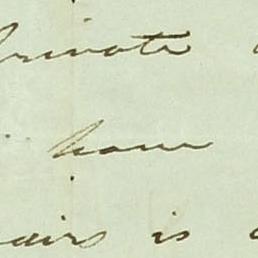 private
have
airs is